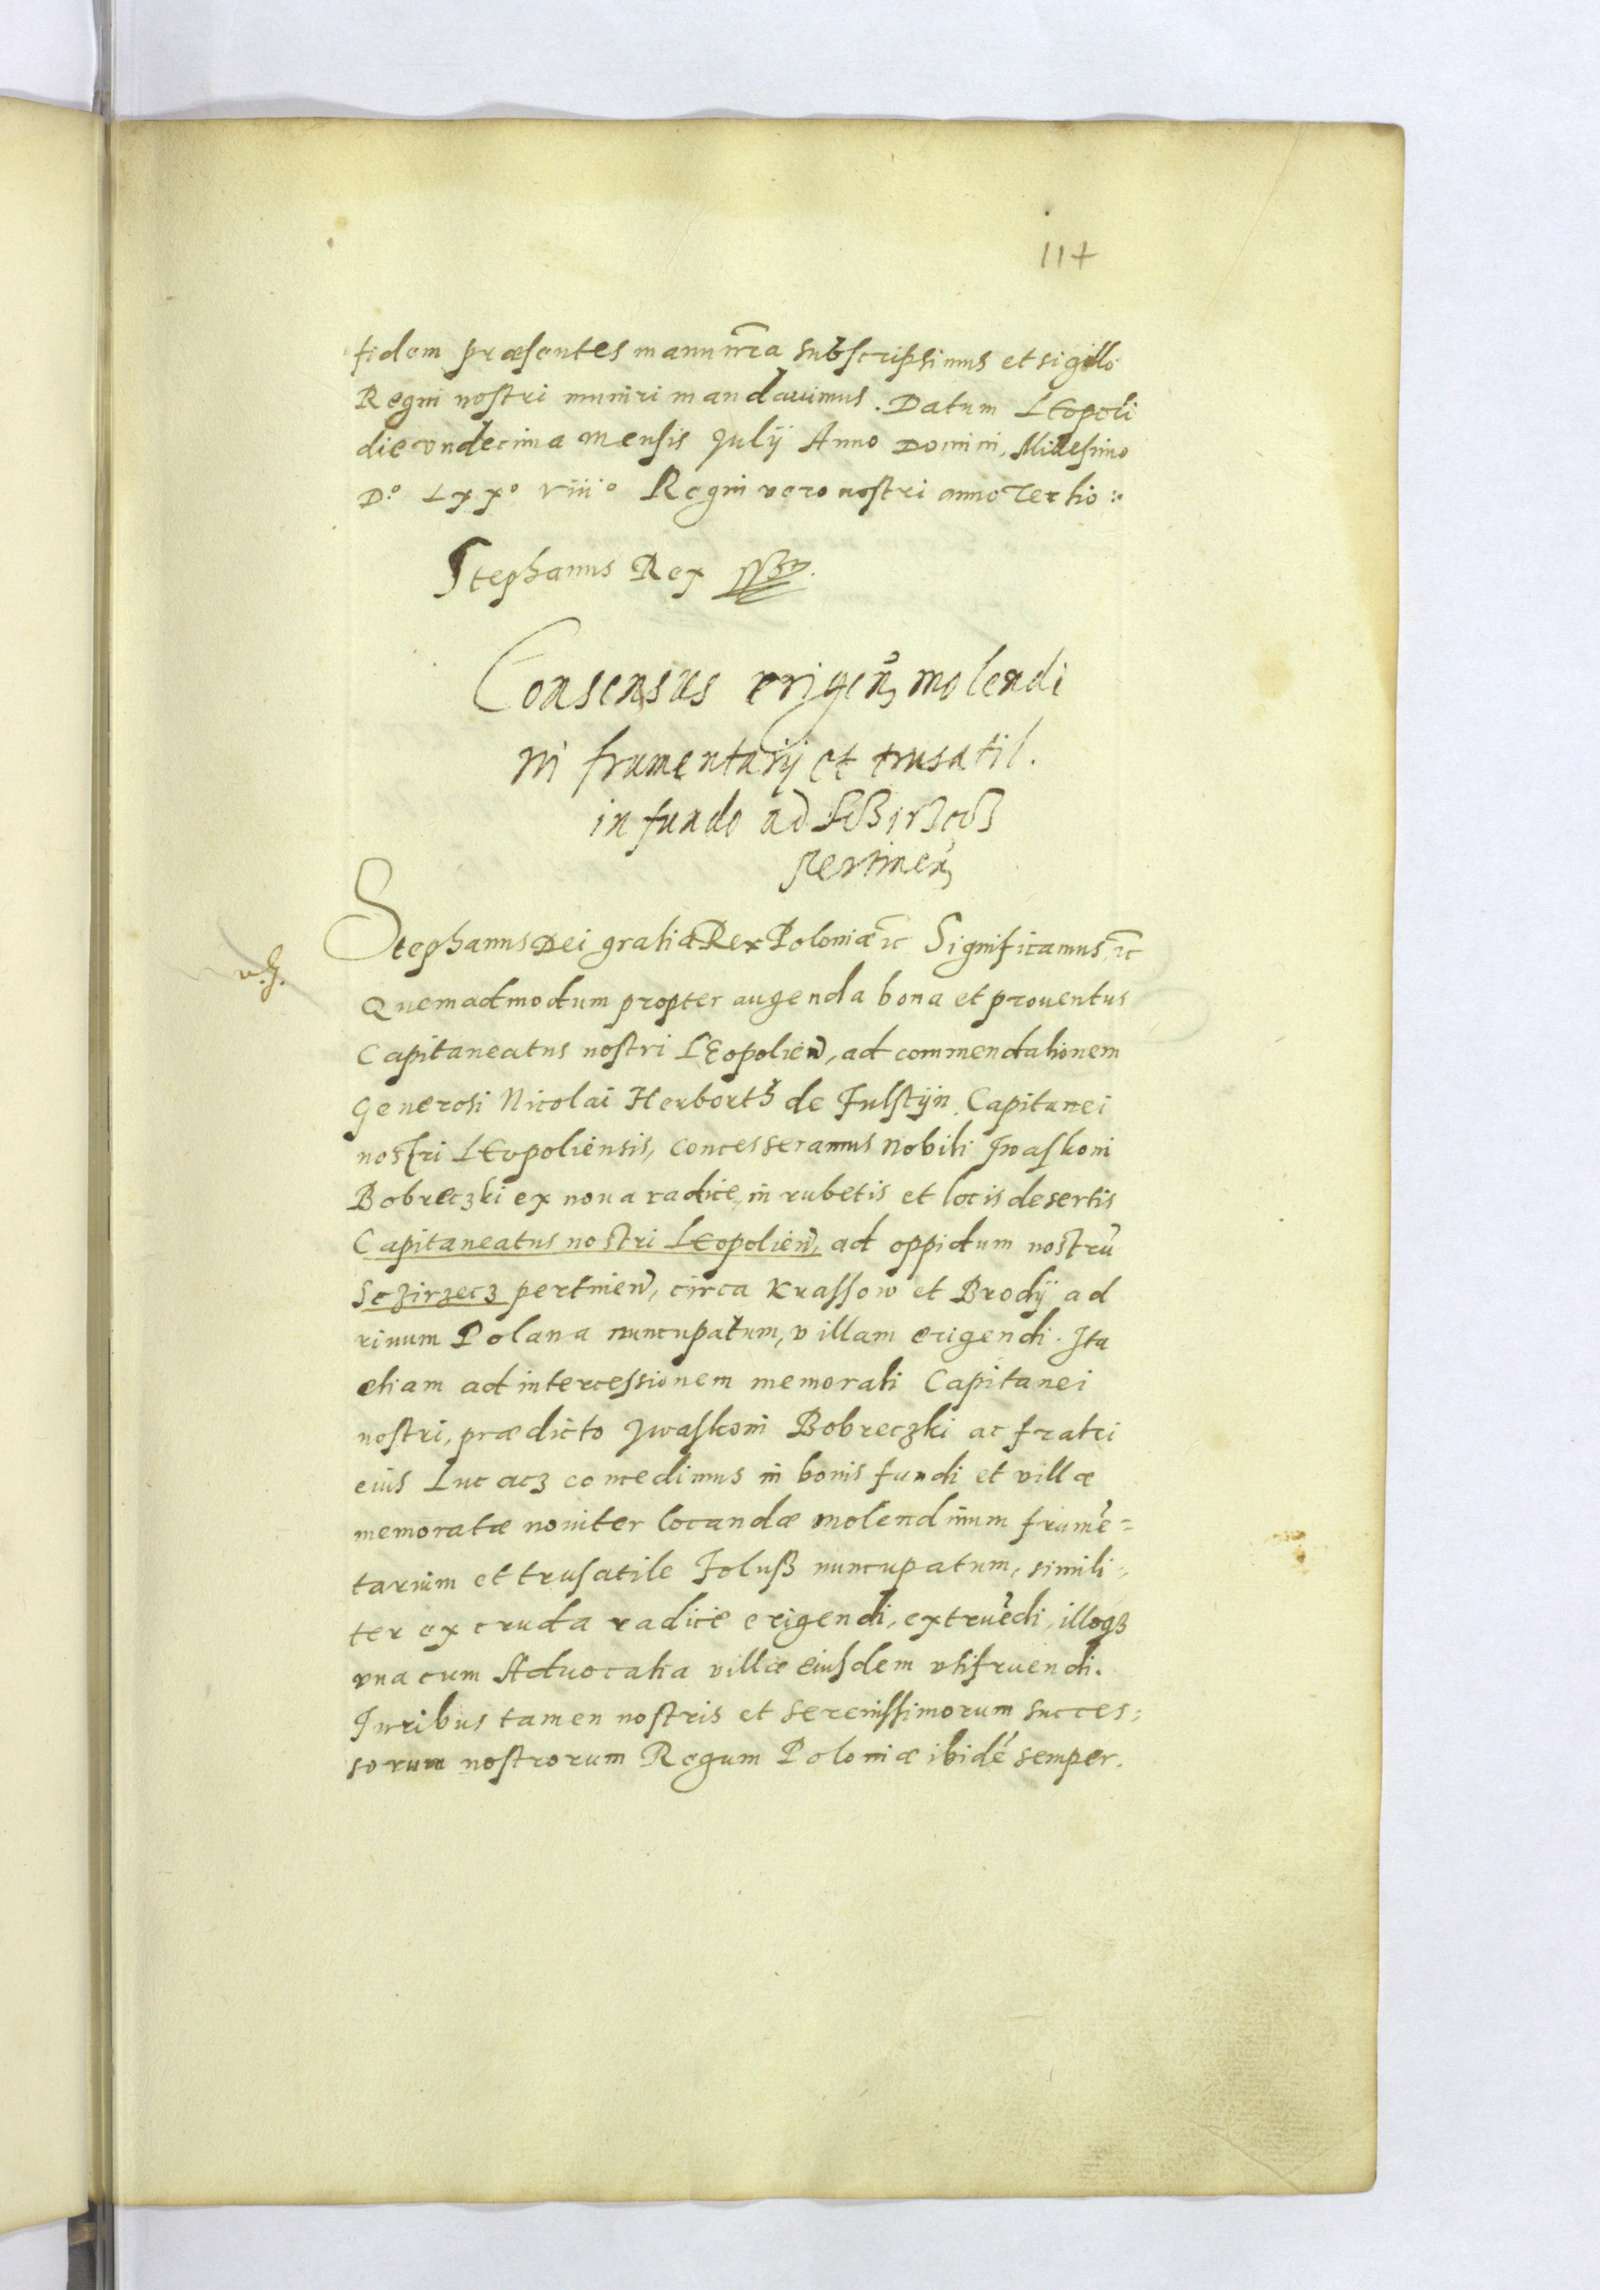 117
fidem præsentes manu nr̃a subscripsimus et sigillo
Regni nostri muniri mandavimus. Datum Leopoli
die vndecima mensis Julij Anno Domini, Millesimo
D.º Lxxº viiiº Regni vero nostri anno Tertio :.
Stephanus Rex
Consensus erigen̄ molendi
ni frumentarij et trusatil.
in fundo ad Sczirzecz
pertinen̄
Stephanus Dei gratia Rex Poloniæ ꝛc Significamus ꝛc
Quemadmodum propter augenda bona et prouentus
Capitaneatus nostri Leopolien̄, ad commendationem
Generosi Nicolai Herborth de Fulstijn Capitanei
nostri Leopoliensis, concesseramus Nobili Iwaskoni
Bobreczki ex noua radice in rubetis et locis desertis
Capitaneatus nostri Leopolien̄, ad oppidum nostrũ
Sczirzecz pertinen̄, circa Krassow et Brodÿ ad
riuum Polana nuncupatum, villam erigendi. Ita
etiam ad intercessionem memorati Capitanei
nostri, prædicto Iwaskoni Bobreczki ac fratri
eius Lucacz concedimus in bonis fundi et villæ
memoratæ noviter locandæ molendinum frumẽ=
tarium et trusatile Foluß nuncupatum, simili=
ter ex cruda radice erigendi, extruẽdi, illoqꝫ
vna cum Aduocatia villæ eiusdem vtifruendi.
Iuribus tamen nostris et serenissimorum succes=
sorum nostrorum Regum Poloniæ ibidẽ semper.